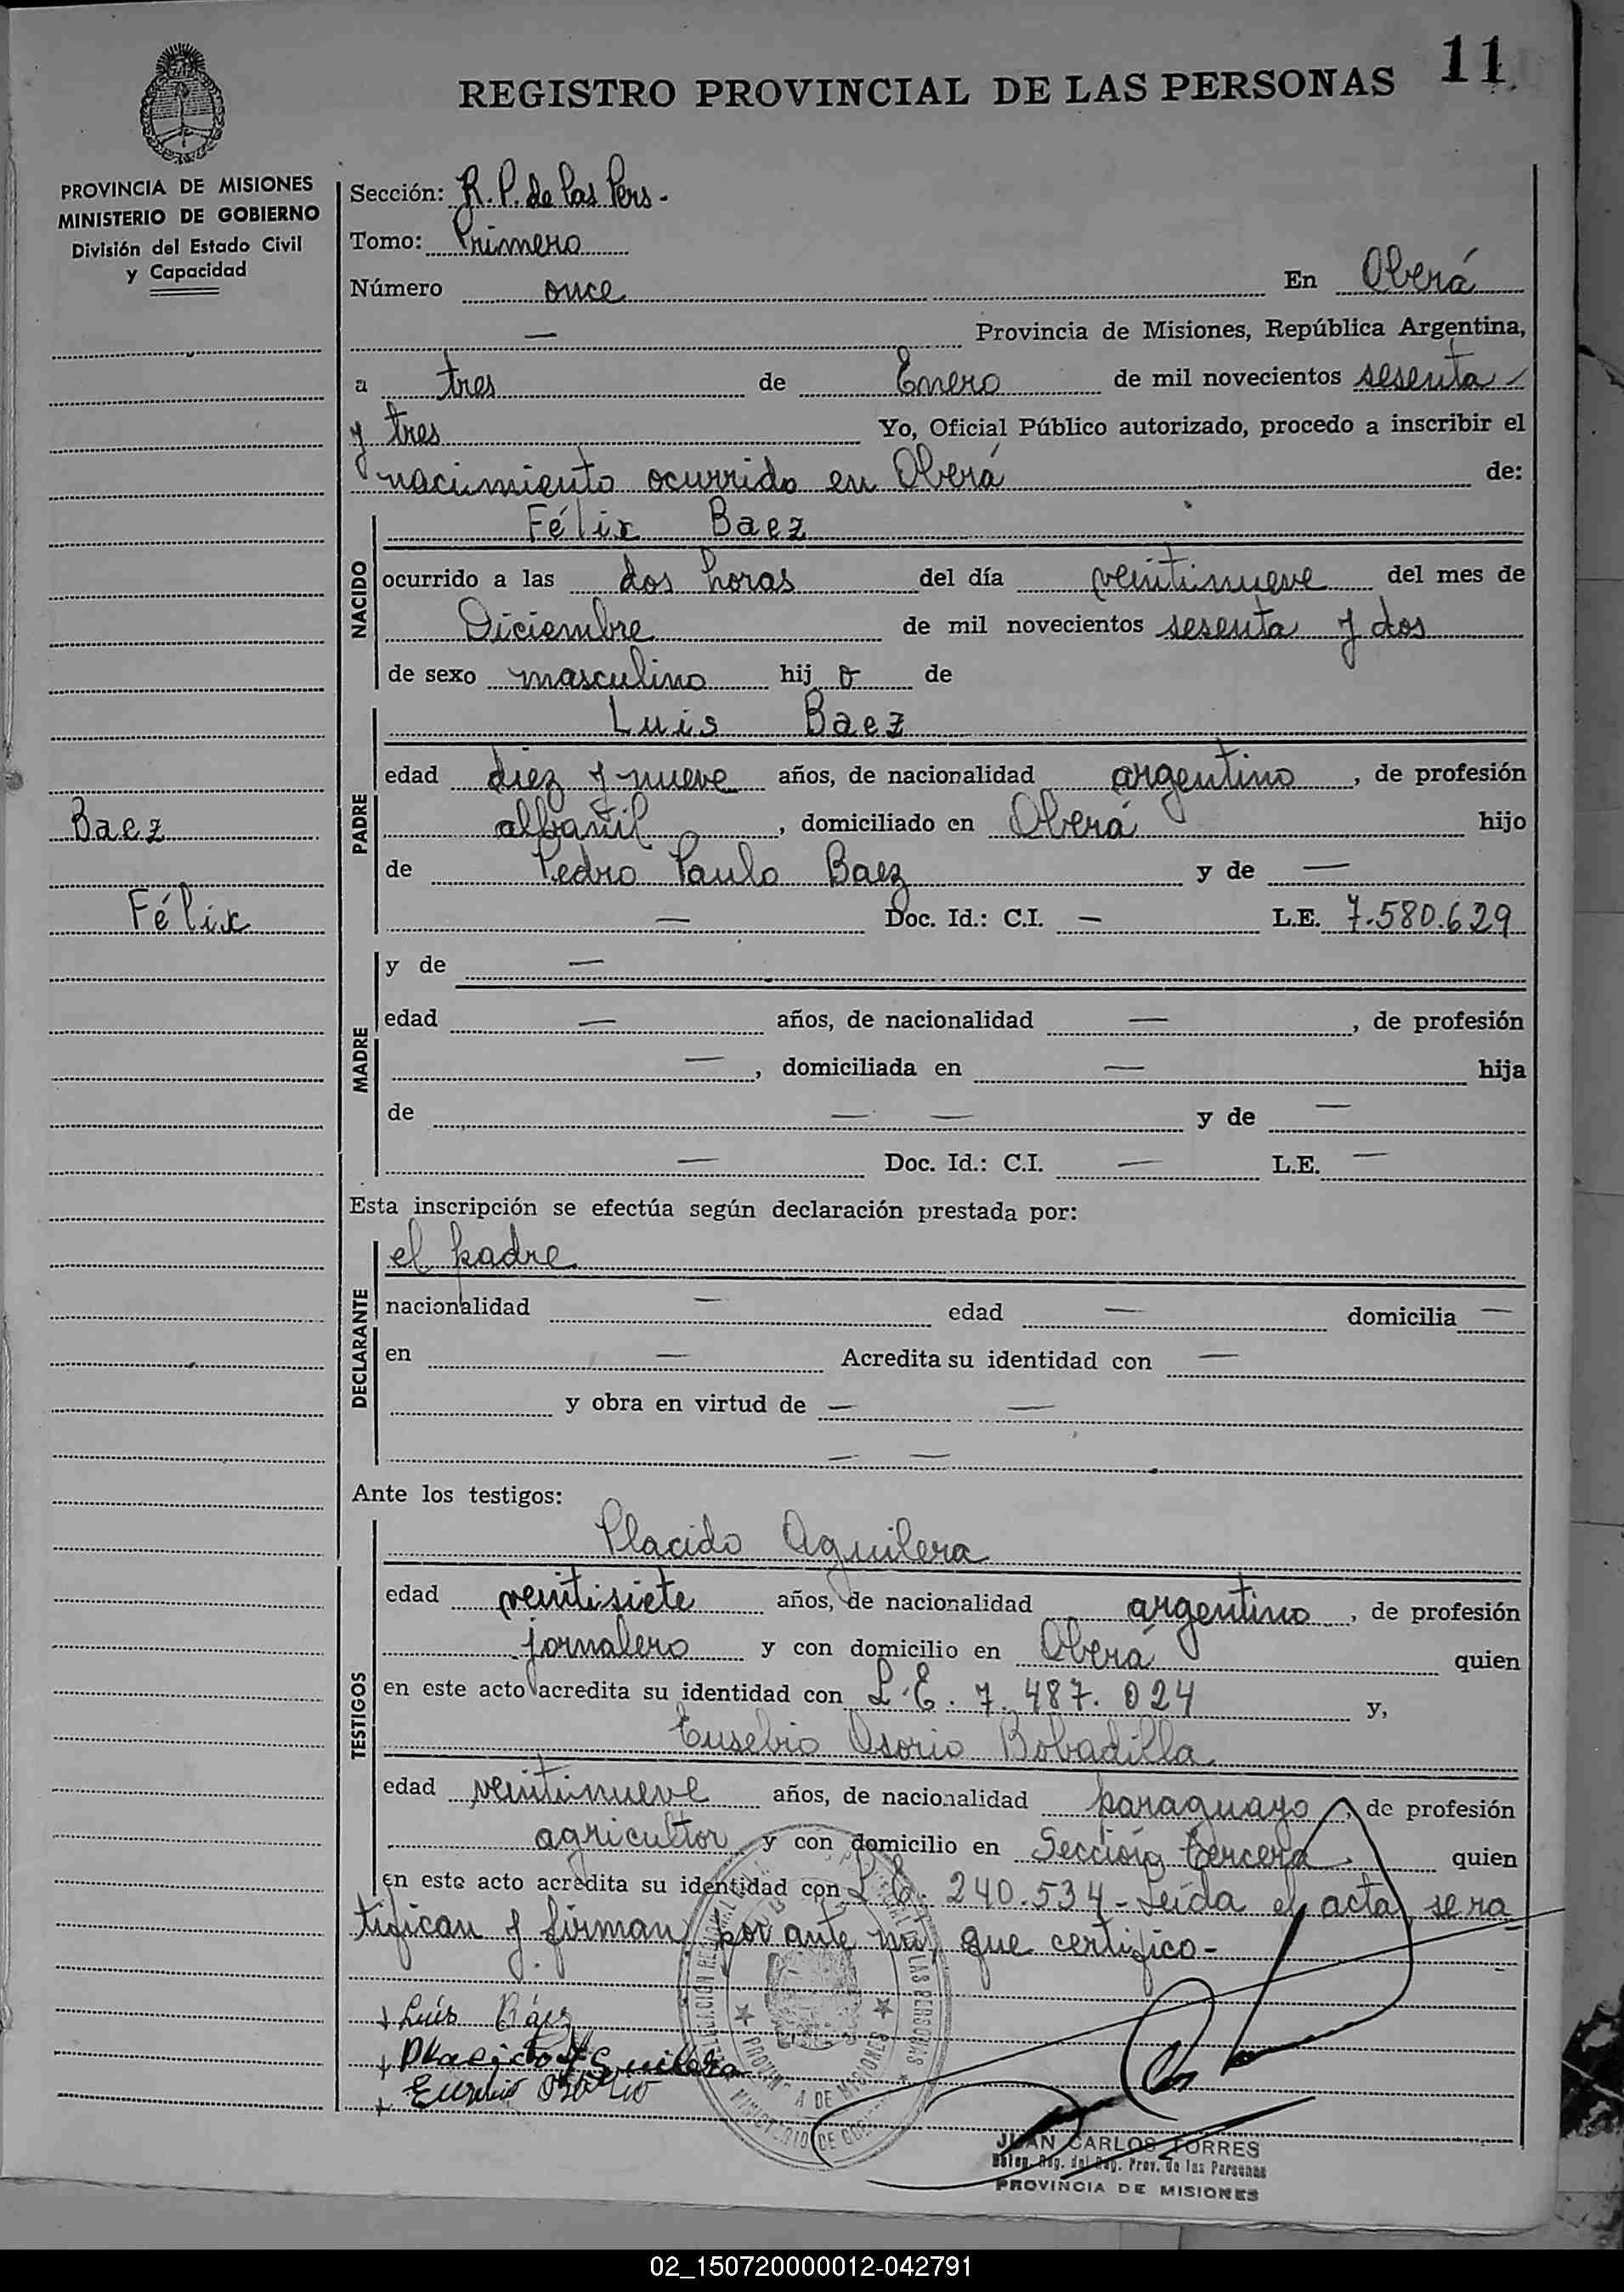 11
REGISTRO PROVINCIAL DE LAS PERSONAS
PROVINCIA DE MISIONES
MINISTERIO DE GOBIERNO
División del Estado Civil
y Capacidad
Baez
Félix
Sección: R. P. de las Pers.-
Tomo: Primero
Número once En Oberá
— Provincia de Misiones, República Argentina,
a tres de Enero de mil novecientos sesenta
y tres Yo, Oficial Público autorizado, procedo a inscribir el
nacimiento ocurrido en Oberá de:
NACIDO
Félix Baez
ocurrido a las dos horas del día veintinueve del mes de
Diciembre de mil novecientos sesenta y dos
de sexo masculino hij o de
PADRE
Luis Baez
edad diez y nueve años, de nacionalidad argentino, de profesión
albañil, domiciliado en Oberá hijo
de Pedro Paulo Baez y de —
— Doc. Id.: C.I. — L.E. 7.580.629
MADRE
y de —
edad — años, de nacionalidad —, de profesión
—, domiciliada en — hija
de — — y de —
— Doc. Id.: C.I. — L.E. —
Esta inscripción se efectúa según declaración prestada por:
DECLARANTE
el padre
nacionalidad — edad — domicilia —
en — Acredita su identidad con —
y obra en virtud de — —
— —
Ante los testigos:
TESTIGOS
Placido Aguilera
edad veintisiete años, de nacionalidad argentino, de profesión
jornalero y con domicilio en Oberá quien
en este acto acredita su identidad con L.E. 7.487.024 y,
Eusebio Osorio Bobadilla
edad veintinueve años, de nacionalidad paraguayo, de profesión
agricultor y con domicilio en Sección tercera quien
en este acto acredita su identidad con 240.534- Leida el acta, se ra
tifican y firman por ante mí, que certifico-
+ Luis Báez
+ Placido Aguilera
+ Eusebio Osorio
PROVINCIA DE MISIONES
JUAN CARLOS TORRES
Deleg. Reg. del Reg. Prov. de las Personas
PROVINCIA DE MISIONES
02_150720000012-042791